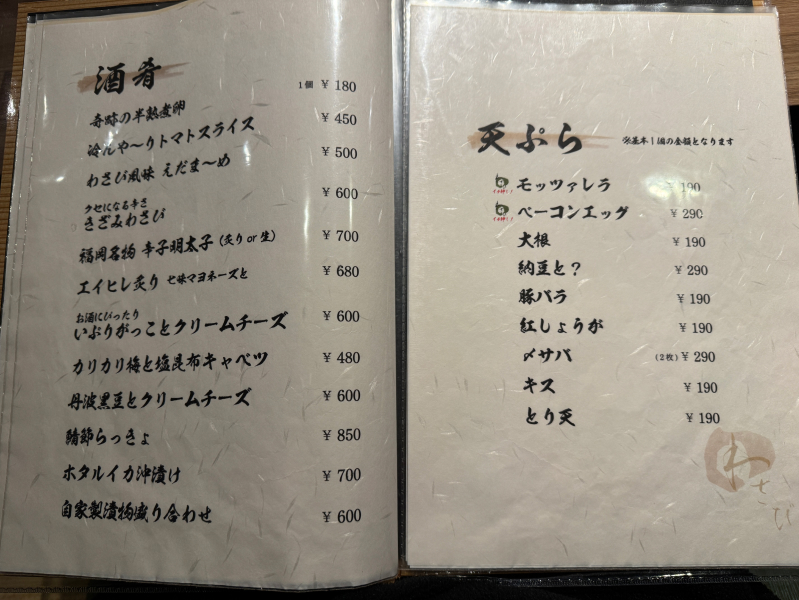 酒肴
奇跡の半熟煮卵 1個 ¥ 180
冷んや〜りトマトスライス ¥ 450
わさび風味 えだま〜め ¥ 500
クセになる辛さ
きざみわさび ¥ 600
福岡名物 辛子明太子（炙り or 生） ¥ 700
エイヒレ炙り 七味マヨネーズと ¥ 680
お酒にぴったり
いぶりがっことクリームチーズ ¥ 600
カリカリ梅と塩昆布キャベツ ¥ 480
丹波黒豆とクリームチーズ ¥ 600
鯖節らっきょ ¥ 850
ホタルイカ沖漬け ¥ 700
自家製漬物盛り合わせ ¥ 600
天ぷら ※基本1個の金額となります
モッツァレラ ¥ 190
ベーコンエッグ ¥ 290
大根 ¥ 190
納豆と？ ¥ 290
豚バラ ¥ 190
紅しょうが ¥ 190
〆サバ (2枚) ¥ 290
キス ¥ 190
とり天 ¥ 190
わさび